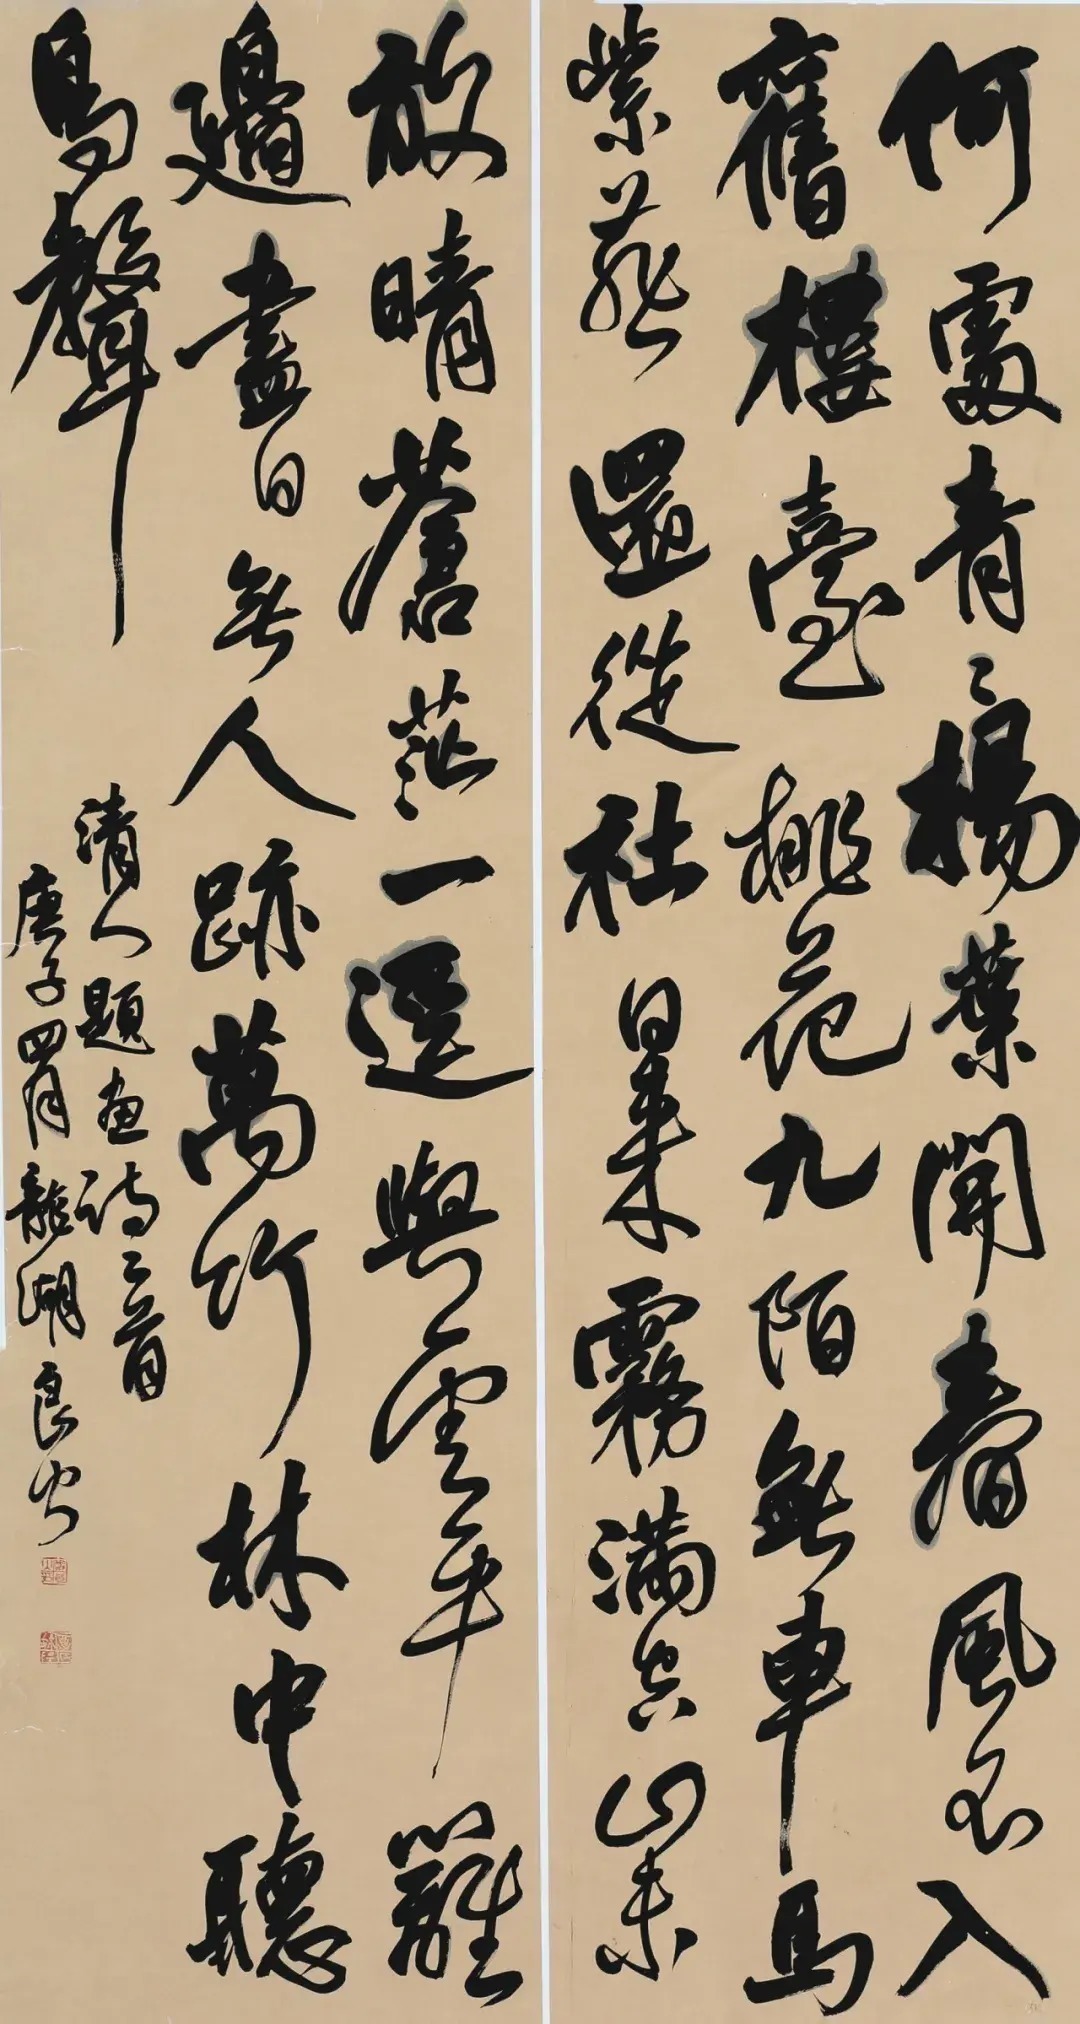 何處青〻楊葉開春風不入
舊樓臺桃花九陌無車馬
紫燕還從社日來霧滿空山未
放晴蒼茫一逕與雲平籬
邊盡日無人跡萬竹林中聽
鳥聲
清人題畫詩二首
庚子四月龍湖良